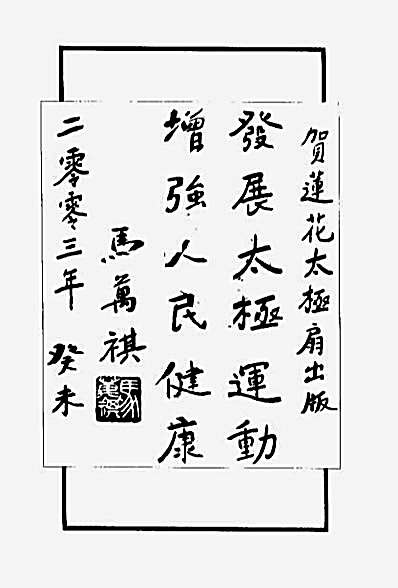 賀蓮花太極扇出版
發展太極運動
增強人民健康
馬萬祺
馬萬祺
二零零三年 癸未